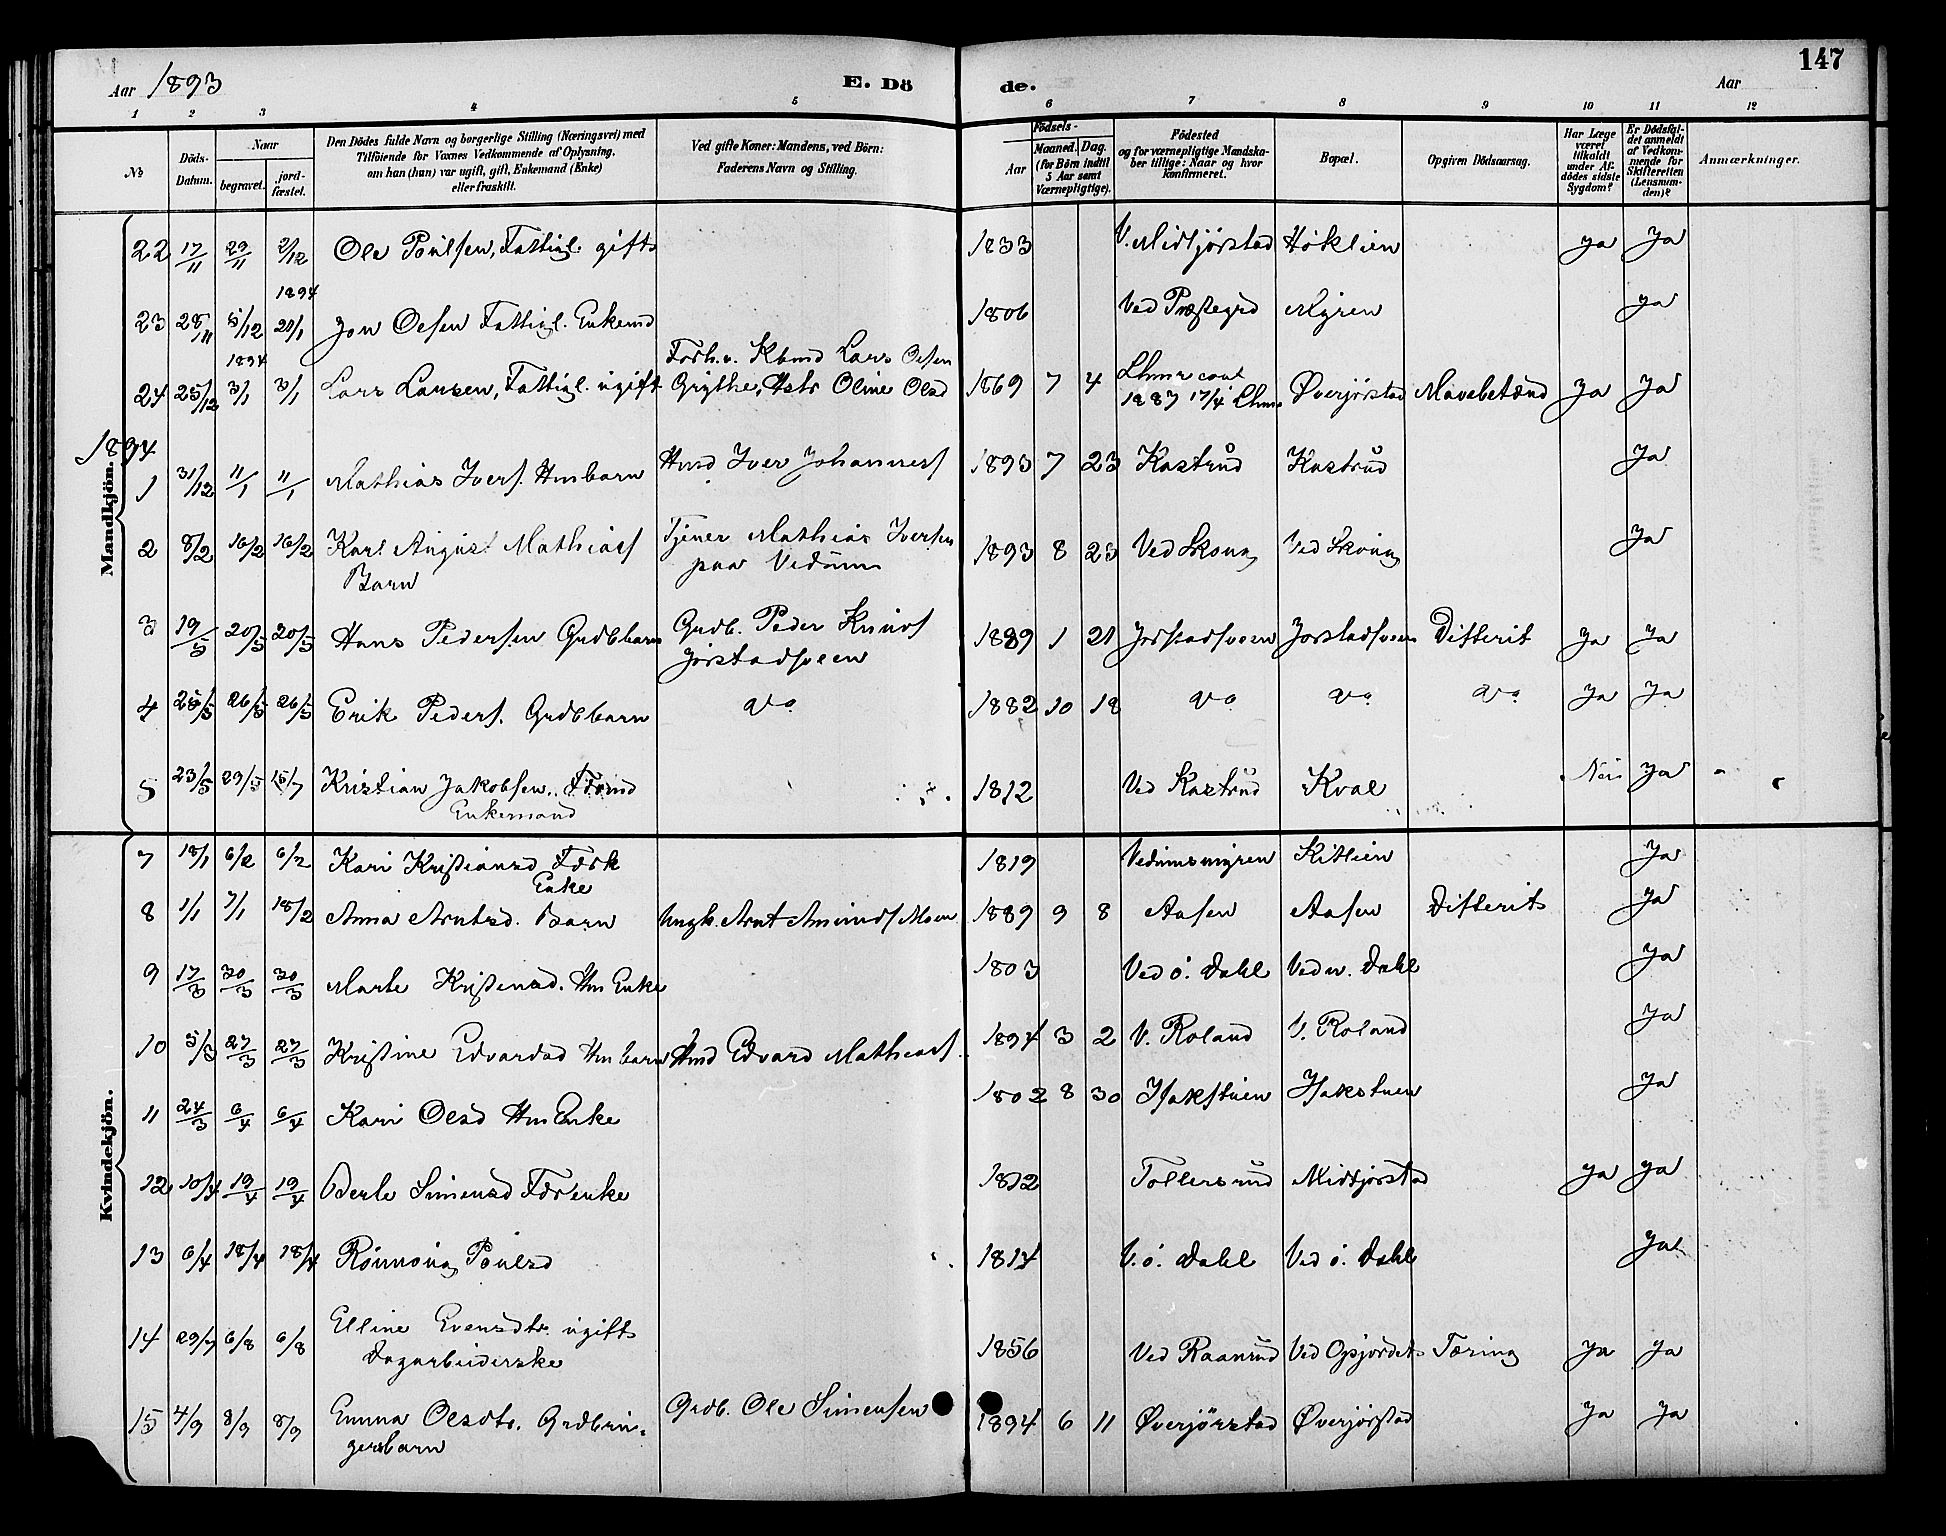 147
Aar 1893 E. Dö de. Aar
1 2 3 4 5 6 7 8 9 10 11 12
No
Döds-Datum.
Naar
begravet.
jord-fæstet.
Den Dödes fulde Navn og borgerlige Stilling (Næringsvei) med
Tilföiende for Voxnes Vedkommende af Oplysning,
om han (hun) var ugift, gift, Enkemand (Enke)
eller fraskilt.
Ved gifte Koner: Mandens, ved Börn:
Faderens Navn og Stilling.
Födsels-
Aar
Maaned. Dag.
(for Börn indtil
5 Aar samt
Værnepligtige).
Födested
og for værnepligtige Mandska-
ber tillige: Naar og hvor
konfirmeret.
Bopæl.
Opgiven Dödsaarsag.
Har Læge
været
tilkaldt
under Af-
dödes sidste
Sygdom?
Er Dödsfal-
det anmeldt
af Vedkom-
mende for
Skifteretten
(Lensman-
den)?
Anmærkninger.
Mandkjön.
22 17/11 29/11 2/12 Ole Poulsen, Fattigl. gift 1833 V. Midtjörstad Höklien ja Ja
1894
23 28/11 5/12 21/1 Jon Olsen Fattigl. Enkemd 1806 Ved Præstegrd Myren Ja
1894 Forh.v. Kbmd Lars Olsen
24 25/12 3/1 3/1 Lars Larsen, Fattigl. ugift Grythe, Hstr Oline Olsd 1869 7 4 Lhmr 1887 17/4 Lhm. Øverjörstad Mavebetænd Ja Ja
1894
1 31/12 11/1 11/1 Mathias Ivers. Hmbarn Hmd Iver Johannesf 1893 7 23 Kastrud Kastrud Ja
2 8/2 16/2 16/2 Karl August Mathiasf Tjener Mathias Iversen 1893 8 23 Ved Skoug Ved Skoug Ja
Barn paa Vedum
3 19/5 20/5 20/5 Hans Pedersen Grdbbarn Grdb. Peder Knudf 1889 1 21 Jörstadsveen Jorstadsveen Difterit Ja Ja
Jörstadsveen
4 25/5 26/5 26/5 Erik Peders. Grdbbarn do 1882 10 18 do do do Ja Ja
5 23/5 29/5 15/7 Kristian Jakobsen, 1812 Ved Kastrud Kval Nei Ja
Enkemand
Kvindekjön.
7 18/1 6/2 6/2 Kari Kristiansd 1819 Vedumsmyren Kitlien Ja
Enke
8 1/1 7/1 18/2 Anna Arntsd. Barn Ungk. Arnt Amundf Moen 1889 9 8 Aasen Aasen Difterit Ja
9 17/3 30/3 30/3 Marte Kristensd. Hm Enke 1803 Ved ö. Dahl Ved n. Dahl Ja
10 5/3 27/3 27/3 Kristine Edvardsd Hmbarn Hmd Edvard Mathiasf 1894 3 2 V. Roland V. Roland Ja
11 24/3 6/4 6/4 Kari Olsd Hm Enke 1802 8 30 Isakstuen Isakstuen Ja
12 10/4 19/4 19/4 Berte Simensd 1812 Tollersrud Midtjörstad Ja Ja
13 6/4 18/4 18/4 Rönnoug Poulsd 1814 V. ö. Dahl Ved ö. Dahl Ja
14 29/7 6/8 6/8 Elline Evensdtr. ugift 1856 Ved Raanrud Ved Opjordet Tæring Ja Ja
Dagarbeiderske
15 4/9 8/9 8/9 Emma Olsdtr. Grdbrin- Grdb. Ole Simensen 1894 6 11 Øverjörstad Øverjörstad Ja Ja
gersbarn